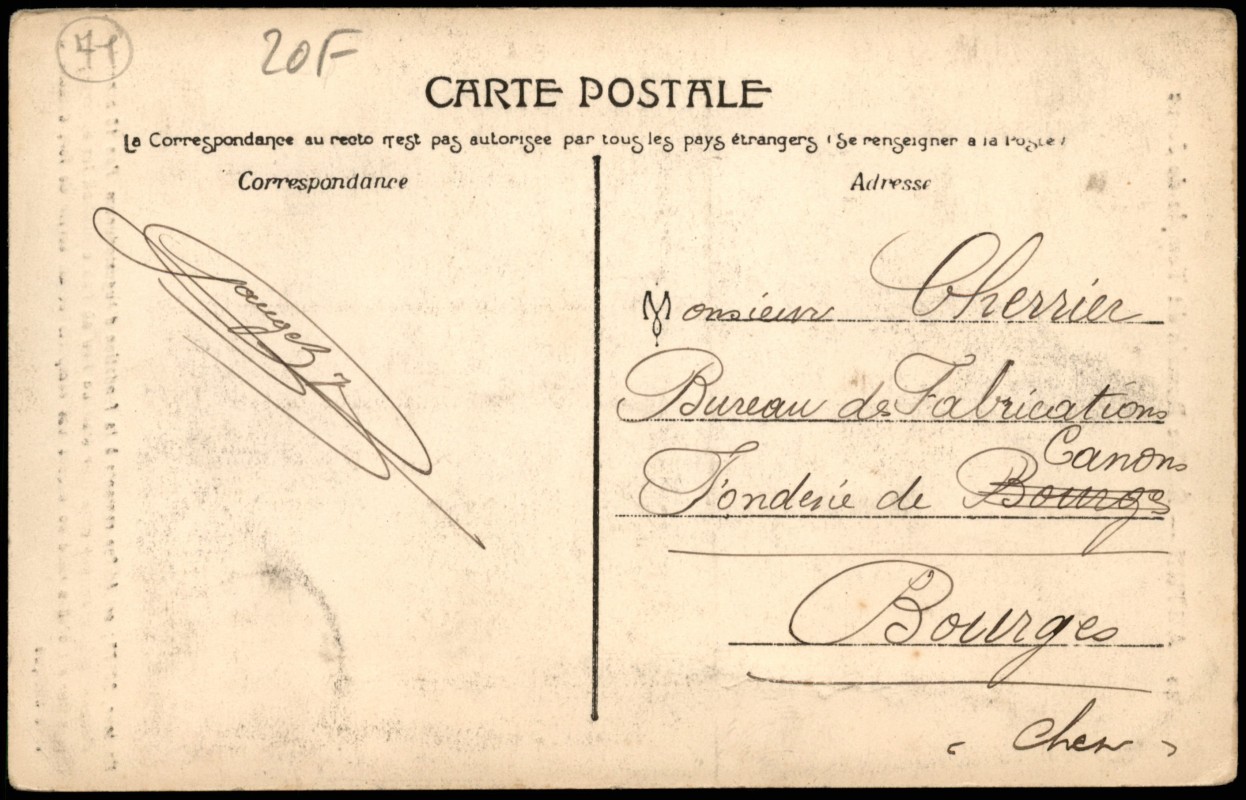 71
20F
CARTE POSTALE
La Correspondance au recto n'est pas autorisée par tous les pays étrangers (Se renseigner à la Poste)
Correspondance
Adresse
Monsieur Cherrier
Bureau des Fabrications
Canons
Fonderie de Bourges
Bourges
(Cher)